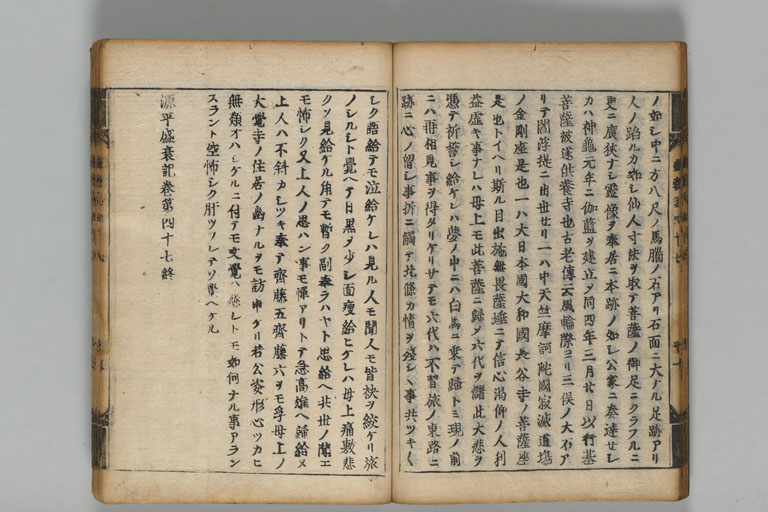 ノ如シ中ニ方八尺ノ馬腦ノ石アリ石面ニ大ナル足跡アリ
人ノ蹈ルカ如シ仙人寸法ヲ取テ菩薩ノ御足ニクラフルニ
更ニ廣狹ナシ靈像ヲ奉居ニ本跡ノ如シ公家ニ奏達セシ
カハ神龜元年ニ伽藍ヲ建立ヲ同四年三月廿日以行基
菩薩被遂供養寺也古老傳云風輪際ヨリ三俣ノ大石ア
リテ閻浮提ニ出世セリ一ハ中天竺摩訶陀國寂滅道場
ノ金剛座是也一ハ大日本國大和國長谷寺ノ菩薩座
是也トイヘリ斯ル目出施無畏薩埵ニテ信心渇仰ノ人利
益虚キ事ナシハ母上モ此菩薩ニ歸ヲ六代ヲ儲此大悲ヲ
憑テ祈誓シ給ケレハ夢ノ中ニハ白馬ニ乘テ歸トミ現ノ前
ニハ再相見事ヲ得タリケリサテモ六代ハ不習旅ノ東路ニ
跡ニ心ノ留シ事折ニ觸テ北條カ情ヲ殘シヽ事共ツキ〱
シク語給テモ泣給ケレハ見ル人モ聞人モ皆袂ヲ絞ケリ旅
ノシルシト覺ヘテ日黒ヲ少シ面瘦給ヒケレハ母上痛敷悲
クソ見給ケル角テモ暫ク副奉ラハヤト思給ヘ共世ノ聞エ
モ怖シク又上人ノ思ハン事モ憚アリトテ急高雄ヘ歸給メ
上人ハ不斜カシツキ奉テ齊藤五齊藤六ヲモ孚母上ノ
大覺寺ノ住居ノ幽ナルヲモ訪申ケリ若公姿形心ツカヒ
無類オハシケルニ付テモ文覺ハ懸シトモ如何ナル事アラン
スラント空怖シク肝ツフレテソ覺ヘケル
源平盛衰記卷第四十七終